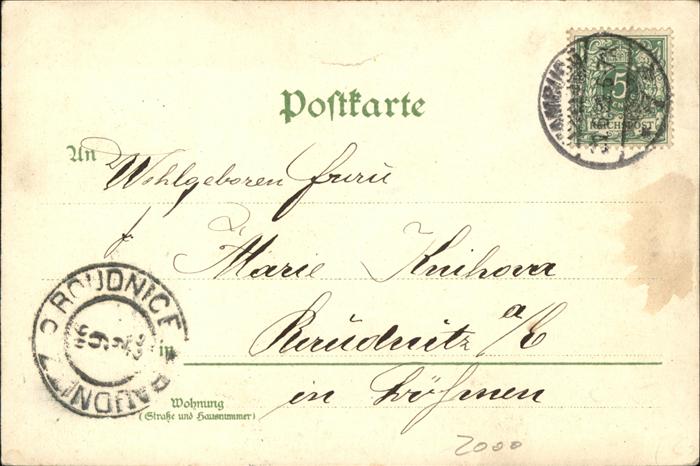 Postkarte
5
REICHSPOST
An
Wohlgeboren Frau
Marie Knihova
in Raudnitz a/E
in Böhmen
Wohnung
(Straße und Hausnummer)
ROUDNICE
RAUDNITZ
2000